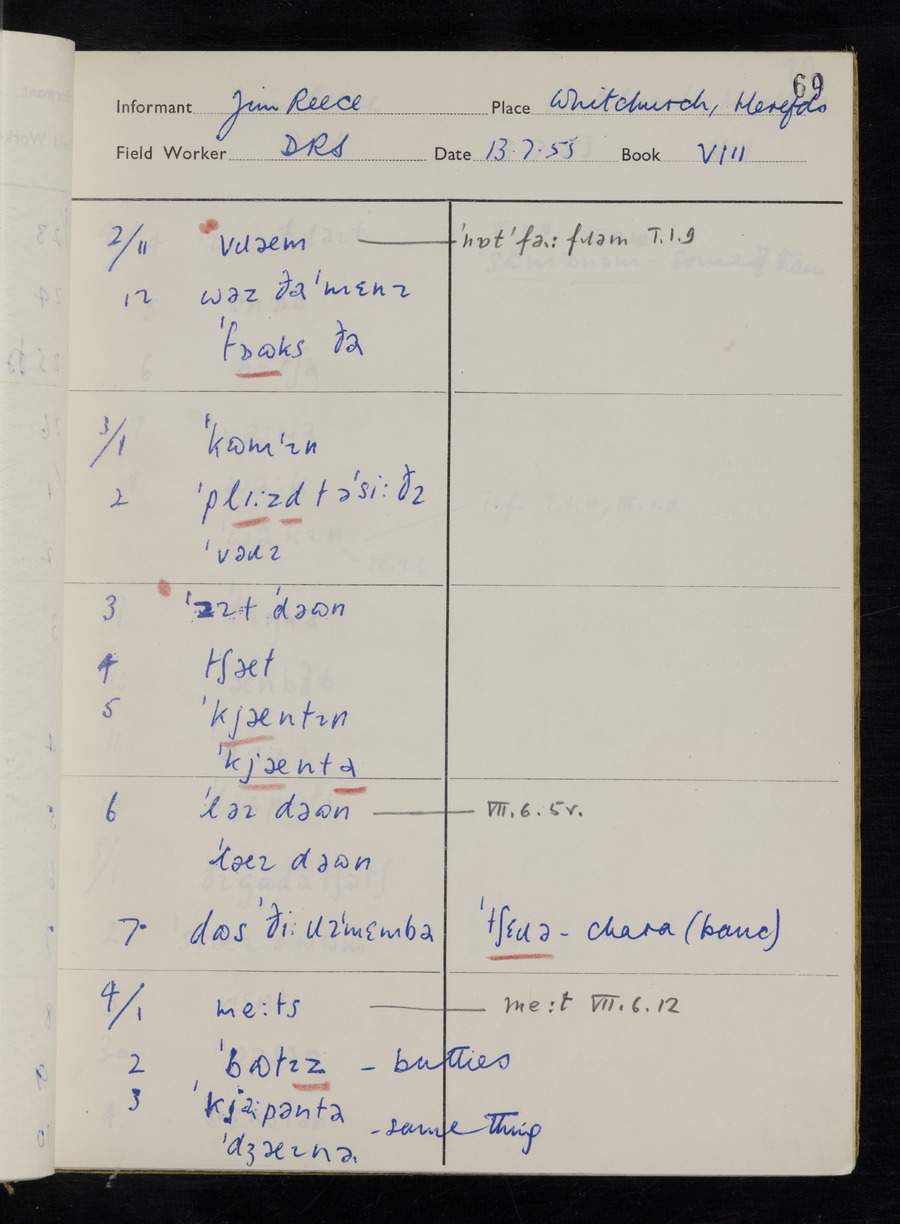 69
Informant Jim Reece Place Whitchurch, Herefds
Field Worker DRS Date 13.7.55 Book VIII
2/11 vɹəem 'nɒt'fəː fɹəm V.1.9
12 wəz ðə'mɛnɪ
'fɒɷks ðə
3/1 'kɷm'ɪn
2 'plɪːzd tə'siː ðɪ
'vəɹɪ
3 'zɪt 'dəɷn
4 tʃæt
5 'kjæntɪn
'kjæntə
6 'ləɪ dəɷn VII.6.5r.
'læɪ dəɷn
7 dɷs 'ðiː ɹɪ'mɛmbə 'tʃɛɹə - chara (banc)
4/1 meːts meːt VII.6.12
2 'bɷtɪz - butties
3 'kjapəntə
'dʒæɪnə - same thing